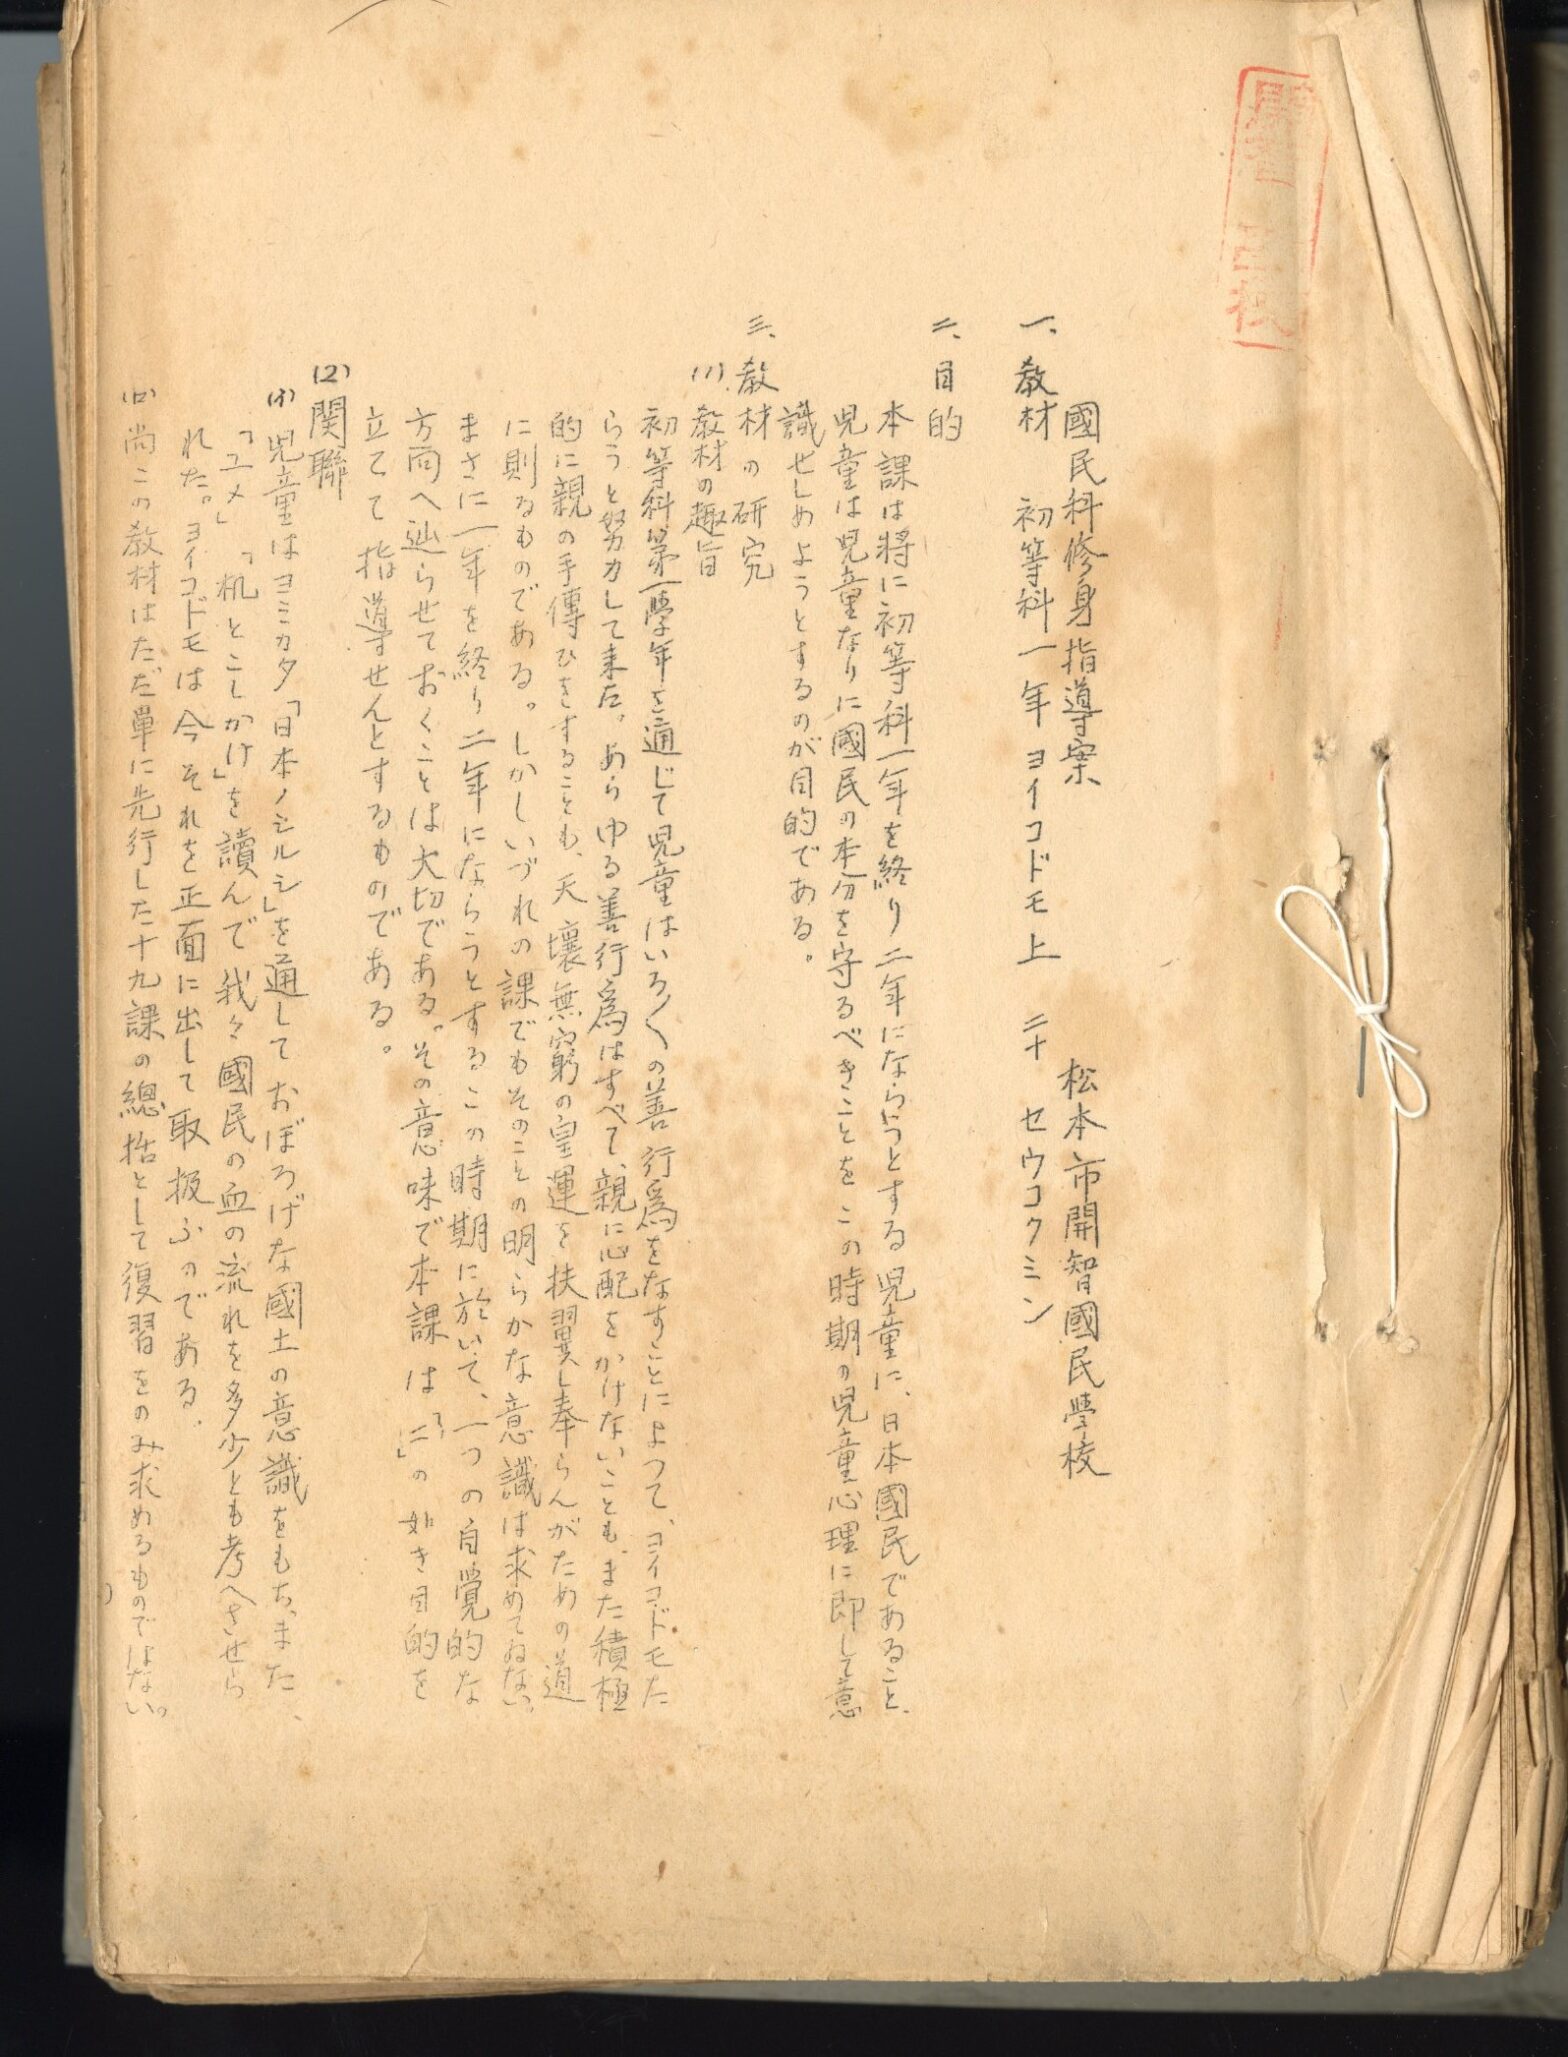 國民科修身指導案　松本市開智國民學校
一、教材　初等科一年　ヨイコドモ　上　二十　セウコクミン
二、目的
本課は將に初等科一年を終り二年にならうとする児童に、日本國民であること、
児童は児童なりに國民の本分を守るべきことをこの時期の児童心理に即して意
識せしめようとするのが目的である。
三、教材の研究
(1)教材の趣旨
初等科第一學年を通じて児童はいろ〱の善行爲をなすことによつて、ヨイコドモた
らうと努力して来た。あらゆる善行爲はすべて、親に心配をかけないことも、また積極
的に親の手傳ひをすることも、天壤無窮の皇運を扶翼し奉らんがための道
に則るものである。しかしいづれの課でもそのことの明らかな意識は求めてゐない。
まさに一年を終り二年にならうとするこの時期に於いて、一つの自覺的な
方向へ辿らせておくことは大切である。その意味で本課は、「二」の如き目的を
立てて指導せんとするものである。
(2)関聯
(イ)児童はヨミカタ「日本ノシルシ」を通しておぼろげな國土の意識をもち、また、
「ユメ」「机とこしかけ」を讀んで我々國民の血の流れを多少とも考へさせら
れた。ヨイコドモは今それを正面に出して取扱ふのである。
(ロ)尚この教材はただ單に先行した十九課の總括として復習をのみ求めるものではない。